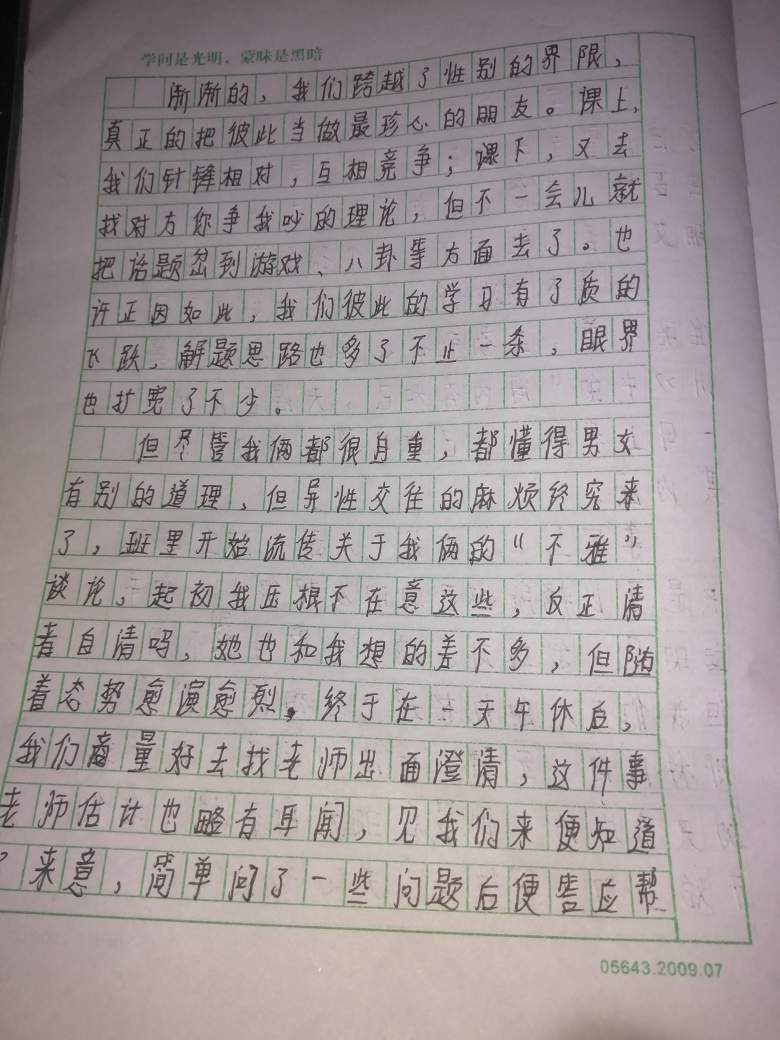 学问是光明，蒙昧是黑暗
渐渐的，我们跨越了性别的界限，
真正的把彼此当做最珍心的朋友。课上，
我们针锋相对，互相竞争；课下，又去
找对方你争我吵的理论，但不一会儿就
把话题岔到游戏、八卦等方面去了。也
许正因如此，我们彼此的学习有了质的
飞跃，解题思路也多了不止一条，眼界
也扩宽了不少。
但尽管我俩都很自重，都懂得男女
有别的道理，但异性交往的麻烦终究来
了，班里开始流传关于我俩的“不雅”
谈论，起初我压根不在意这些，反正清
者自清吗，她也和我想的差不多，但随
着态势愈演愈烈，终于在一天午休后，
我们商量好去找老师出面澄清，这件事
老师估计也略有耳闻，见我们来便知道
了来意，简单问了一些问题后便答应帮
05643.2009.07